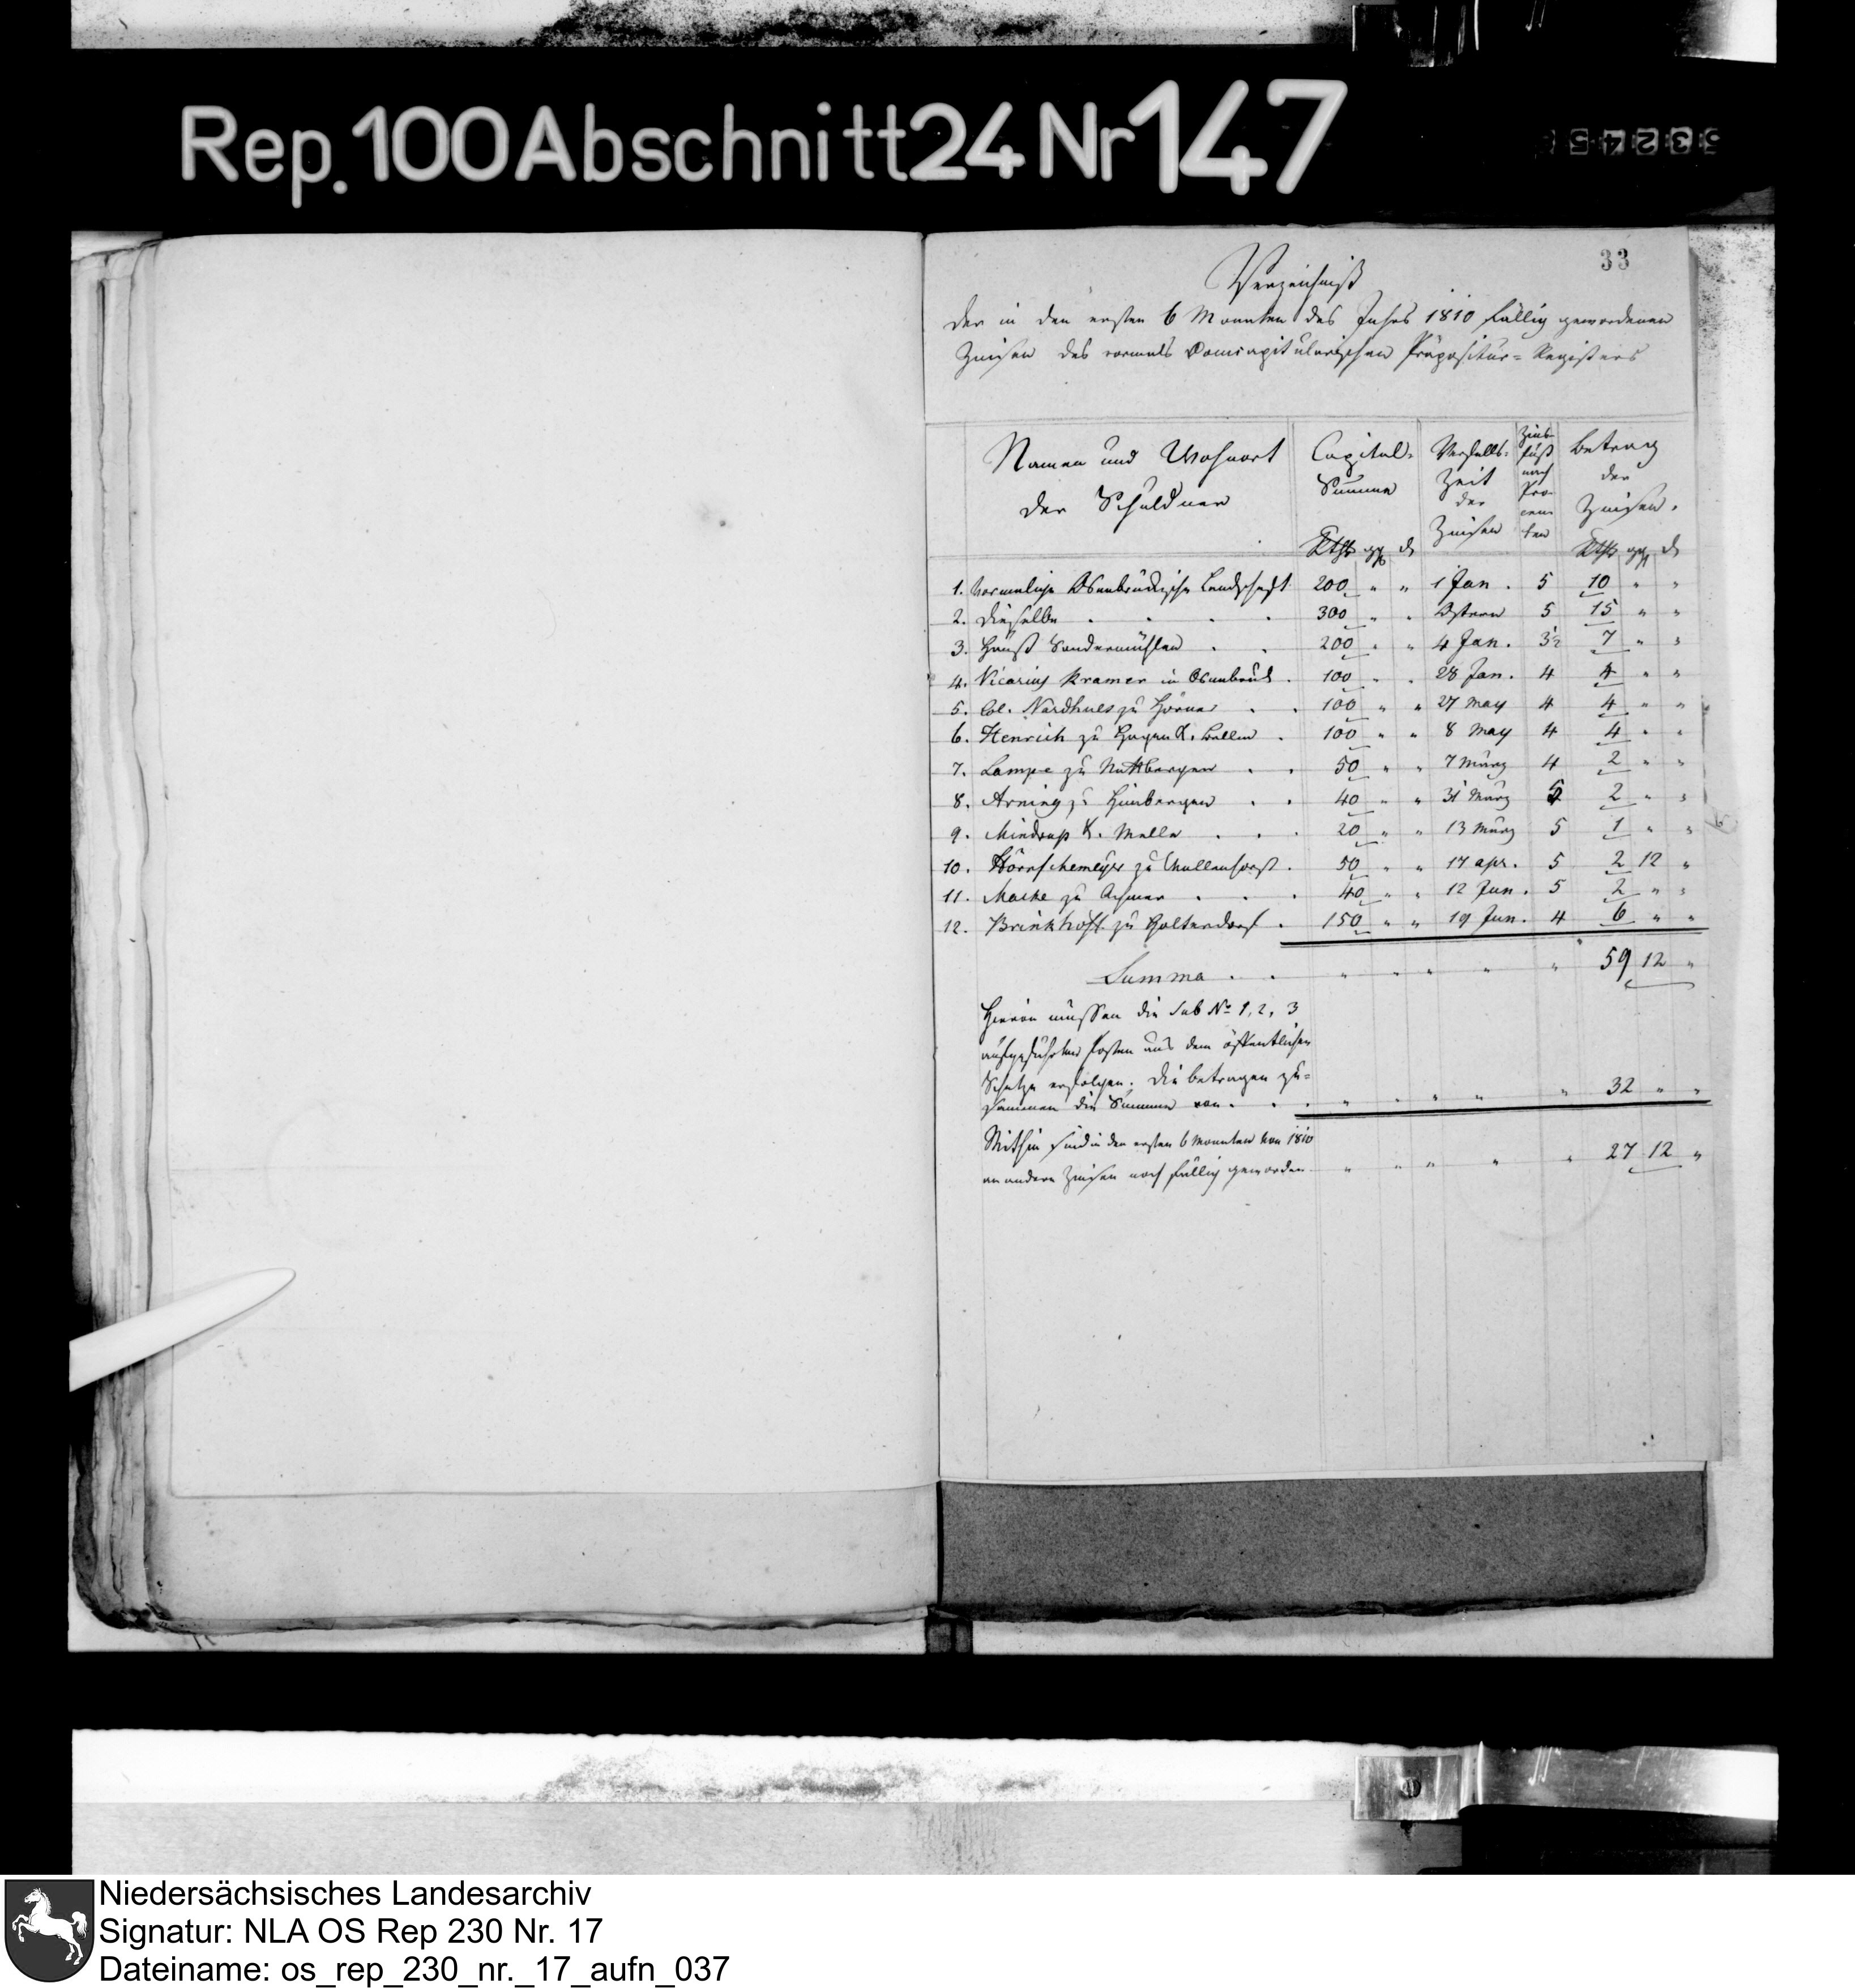 Rep. 100 Abschnitt 24 Nr 147
33
Verzeichniß
der in den ersten 6 Monaten des Jahrs 1810 fällig gewordenen
Zinsen des vormals Domcapitularischen Präpositur-Registers
Namen und Wohnort der Schuldner | Capital-Summe | Verfalls-Zeit der Zinsen | Zinsfuß nach Procenten | Betrag der Zinsen.
Rthlr ggr d | Rthlr ggr d
1. Vormalige Osnabrückische Landschaft 200 " " 1 Jan. 5 10 " "
2. Dieselbe . . . . 300 " " Ostern 5 15 " "
3. Hauß Sondermühlen . . 200 " " 4 Jan. 3½ 7 " "
4. Vicarius Kramer in Osnabrück . 100 " " 28 Jan. 4 4 " "
5. Col. Nardhues zu . . 100 " " 27 May 4 4 " "
6. Henrich zu Hagen K. Bellm . 100 " " 8 May 4 4 " "
7. Lampe zu Nattbergen . . 50 " " 7 März 4 2 " "
8. Arning zu Himbergen . . 40 " " 31 März 5 2 " "
9. Mindrup K. Melle . . . 20 " " 13 März 5 1 " "
10. zu . 50 " " 17 apr. 5 2 12 "
11. zu Achmer . . . 40 " " 12 Jun. 5 2 " "
12. Brinkhoff zu Holterdorf . 150 " " 19 Jun. 4 6 " "
Summa . . " " " " " 59 12 "
Hievon müssen die sub No 1, 2, 3
aufgeführten Posten aus dem öffentlichen
Schatze erfolgen. Die betragen zu-
sammen die Summe von . . . " " " " " 32 " "
Mithin sind in den ersten 6 Monaten von 1810
an andern Zinsen noch fällig geworden " " " " " 27 12 "
Niedersächsisches Landesarchiv
Signatur: NLA OS Rep 230 Nr. 17
Dateiname: os_rep_230_nr._17_aufn_037